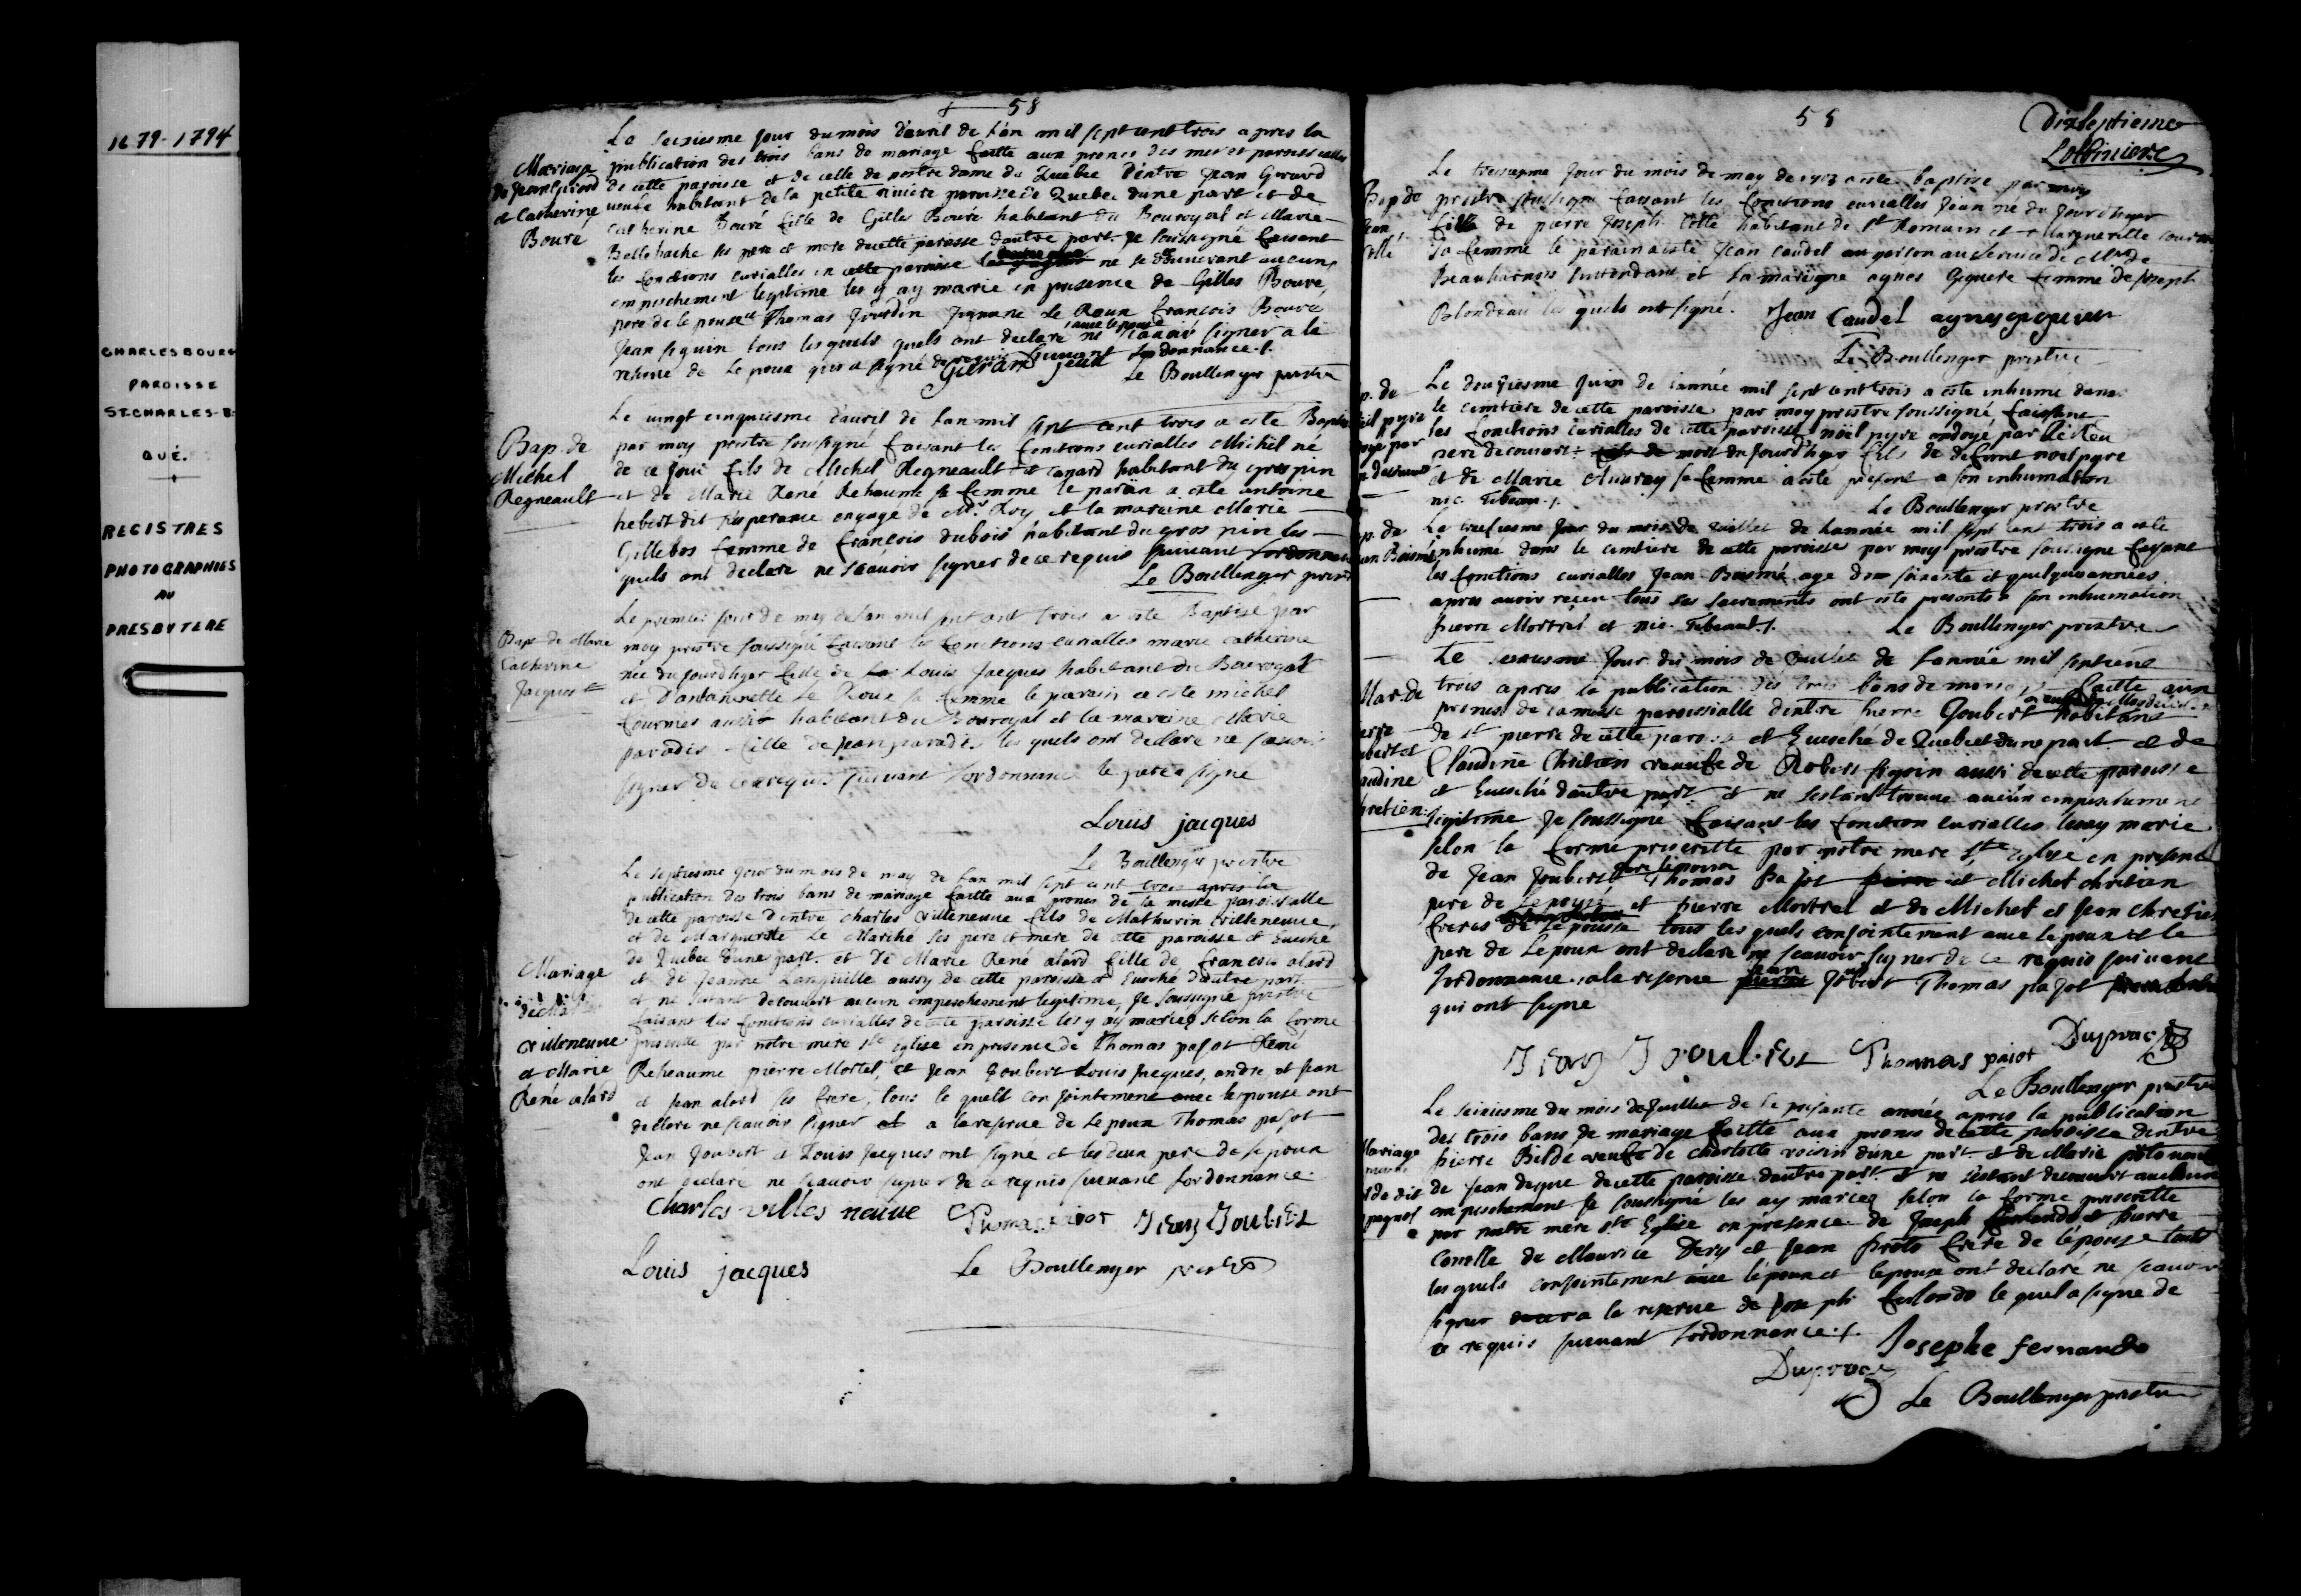 1679-1794
CHARLESBOURG
PAROISSE
ST-CHARLES-B.
QUÉ.
REGISTRES
PHOTOGRAPHIES
AU
PRESBYTERE
58
Mariage
de Jean Girard
et Catherine
Bouré
Le seiziesme jour du mois d'avril de l'an mil sept cent trois apres la
publication des trois bans de mariage faitte aux prones des messes paroissialles
de cette paroisse et de celle de nostre dame de Quebec d'entre Jean Girard
habitant de la petite riviere paroisse de Quebec d'une part et de
Catherine Bouré fille de Gilles Bouré habitant du Bouroyal et Marie
Bellehache ses pere et mere de cette paroisse d'autre part. Je soussigné faisant
les fonctions curialles en cette paroisse ne se decouvrant aucun
empeschement legitime les y ay marié en presence de Gilles Bouré
pere de lepouse Thomas Jourdin Le Roux francois Bouré
Jean seguin tous lesquels ont declaré avec lepouse ne scavoir signer a la
reserve de lepoux qui a signé de ce requis suivant lordonnance
Girard jean Le Boullenger prestre
Bap. de
Michel
Regneault
Le vingt cinquiesme d'avril de lan mil sept cent trois a esté Baptisé
par moy prestre soussigné faisant les fonctions curialles Michel né
de ce jour fils de Michel Regneault dit canard habitant du gros pin
et de Marie René Rehaume sa femme le parain a esté antoine
hebert dit lesperance engagé de Mr Roy et la maraine Marie
Gillebos femme de francois dubois habitant du gros pin les
quels ont declaré ne scavoir signer de ce requis suivant lordonnance
Le Boullenger prestre
Bap. de Marie
Catherine
Jacques
Le premier jour de may de lan mil sept cent trois a esté Baptisé par
moy prestre soussigné faisant les fonctions curialles marie catherine
née du jourdhyer fille de Louis Jacques habitant du Bouroyal
et D'antoinette Le Roux sa femme le parain a esté michel
fourmer aussi habitant du Bouroyal et la maraine Marie
paradis fille de Jean paradis les quels ont declaré ne scavoir
signer de ce requis suivant lordonnance le pere a signé
Louis jacques
Le Boullenger prestre
Mariage
de Charles
villeneuve
et Marie
René alard
Le septiesme jour du mois de may de lan mil sept cent trois apres la
publication des trois bans de mariage faitte aux prones de la messe paroissialle
de cette paroisse d'entre charles villeneuve fils de Mathurin villeneuve
et de Marguerite Le Marché ses pere et mere de cette paroisse et Evesché
de Quebec d'une part. et de Marie René alard fille de francois alard
et de Jeanne Languille aussy de cette paroisse et Evesché d'autre part
et ne sestant decouvert aucun empeschement legitime, Je soussigné prestre
faisant les fonctions curialles de cette paroisse les y ay mariés selon la forme
prescritte par notre mere Ste eglise en presence de Thomas pajot René
Reheaume pierre Mortel, et Jean Joubert Louis Jacques, andre, et jean
et jean alard ses frere, tous le quels conjointement avec lespouse ont
declaré ne scavoir signer et a la reserve de lepoux Thomas pajot
Jean Joubert et Louis Jacques ont signé et les deux pere de lepoux
ont declaré ne scavoir signer de ce requis suivant lordonnance
Charles villes neuve Thomas pajot Jean Joubert
Louis jacques Le Boullenger prestre
58
Dixseptieme
Lotbiniere
Bap de
Jean
Collé
Le tresiesme jour du mois de may de 1703 a esté baptisé par moy
prestre soussigné faisant les fonctions curialles Jean né du jourdhyer
fils de pierre Joseph Collé habitant de St Romain et Marguerite
sa femme le parain a esté Jean Caudel garson au service de Mr de
Beauharnois Intendant et la maraine agnes Giguere femme de Joseph
Blondeau les quels ont signé. Jean Caudel agnes giguere
Le Boullenger prestre
Le douziesme Juin de l'année mil sept cent trois a esté inhumé dans
le cimetiere de cette paroisse par moy prestre soussigné faisant
les fonctions curialles de cette paroisse noël pyre ondoyé par
pere de couvert mort du jourdhyer fils de defunt noel pyre
et de Marie Auvray sa femme a esté present a son inhumation
nic. Tibeau.
Le Boullenger prestre
Le tresiesme jour du mois de Juillet de lannée mil sept cent trois a esté
inhumé dans le cimetiere de cette paroisse par moy prestre soussigné faisant
les fonctions curialles Jean Boismé agé de soixante et quelques années
apres avoir receu tous ses sacrements ont esté presents a son inhumation
pierre Mortrel et nic. Tibeault.
Le Boullenger prestre
Mar. de
pierre
Joubert et
Claudine
Chretien
Le jour du mois de Juillet de l'année mil sept cent
trois apres la publication des trois bans de mariage faitte aux
prones de la messe paroissialle d'entre pierre Joubert habitant
de St pierre de cette paroisse et Evesché de Quebec d'une part et de
Claudine Chretien veuve de Robert seguin aussi de cette paroisse
et Evesché dautre part et ne sestant trouvé aucun empeschement
legitime Je soussigné faisant les fonction curialles les ay marié
selon la forme prescritte par notre mere Ste eglise en presence
de Jean Joubert pere de lepoux Thomas pajot et Michel chretien
pere de lepouse et pierre Mortrel et de Michel et Jean chretien
freres de lepouse tous les quels conjointement avec lepoux et le
pere de lepoux ont declaré ne scavoir signer de ce requis suivant
lordonnance a la reserve Jean Jobert Thomas pajot
qui ont signé
Jean Joubert Thomas paiot Duprac
Le Boullenger prestre
Le seiziesme du mois de Juillet de la presente année apres la publication
des trois bans de mariage faitte aux prones de cette paroisse d'entre
pierre Belde veuf de charlotte voisin d'une part et de Marie
de Jean de cette paroisse dautre part. et ne sestant decouvert aucun
empeschement Je soussigné les ay mariez selon la forme prescritte
par notre mere Ste Eglise en presence de Joseph et pierre
Canelle de Maurice Dery et Jean proto frere de lépouse touts
les quels conjointement avec lépoux et lepouse ont declaré ne scavoir
signer a la reserve de Joseph le quel a signé de
ce requis suivant lordonnance.
Josephe fernando
Duprac
Le Boullenger prestre